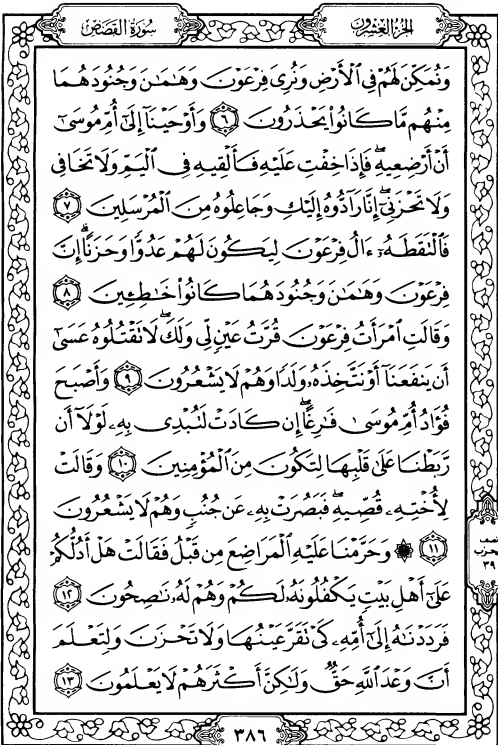 سُورَةُ القَصَصِ
الجُزْءُ العِشْرُونَ
وَنُمَكِّنَ لَهُمْ فِي ٱلْأَرْضِ وَنُرِيَ فِرْعَوْنَ وَهَٰمَٰنَ وَجُنُودَهُمَا
مِنْهُم مَّا كَانُوا۟ يَحْذَرُونَ ٦ وَأَوْحَيْنَآ إِلَىٰٓ أُمِّ مُوسَىٰٓ
أَنْ أَرْضِعِيهِ ۖ فَإِذَا خِفْتِ عَلَيْهِ فَأَلْقِيهِ فِى ٱلْيَمِّ وَلَا تَخَافِى
وَلَا تَحْزَنِىٓ ۖ إِنَّا رَآدُّوهُ إِلَيْكِ وَجَاعِلُوهُ مِنَ ٱلْمُرْسَلِينَ ٧
فَٱلْتَقَطَهُۥٓ ءَالُ فِرْعَوْنَ لِيَكُونَ لَهُمْ عَدُوًّا وَحَزَنًا ۗ إِنَّ
فِرْعَوْنَ وَهَٰمَٰنَ وَجُنُودَهُمَا كَانُوا۟ خَٰطِـِٔينَ ٨
وَقَالَتِ ٱمْرَأَتُ فِرْعَوْنَ قُرَّتُ عَيْنٍ لِّى وَلَكَ ۖ لَا تَقْتُلُوهُ عَسَىٰٓ
أَن يَنفَعَنَآ أَوْ نَتَّخِذَهُۥ وَلَدًا وَهُمْ لَا يَشْعُرُونَ ٩ وَأَصْبَحَ
فُؤَادُ أُمِّ مُوسَىٰ فَٰرِغًا ۖ إِن كَادَتْ لَتُبْدِى بِهِۦ لَوْلَآ أَن
رَّبَطْنَا عَلَىٰ قَلْبِهَا لِتَكُونَ مِنَ ٱلْمُؤْمِنِينَ ١٠ وَقَالَتْ
لِأُخْتِهِۦ قُصِّيهِ ۖ فَبَصُرَتْ بِهِۦ عَن جُنُبٍ وَهُمْ لَا يَشْعُرُونَ
١١ ۞ وَحَرَّمْنَا عَلَيْهِ ٱلْمَرَاضِعَ مِن قَبْلُ فَقَالَتْ هَلْ أَدُلُّكُمْ
عَلَىٰٓ أَهْلِ بَيْتٍ يَكْفُلُونَهُۥ لَكُمْ وَهُمْ لَهُۥ نَٰصِحُونَ ١٢
فَرَدَدْنَٰهُ إِلَىٰٓ أُمِّهِۦ كَىْ تَقَرَّ عَيْنُهَا وَلَا تَحْزَنَ وَلِتَعْلَمَ
أَنَّ وَعْدَ ٱللَّهِ حَقٌّ وَلَٰكِنَّ أَكْثَرَهُمْ لَا يَعْلَمُونَ ١٣
نصف
الحزب
٣٩
٣٨٦